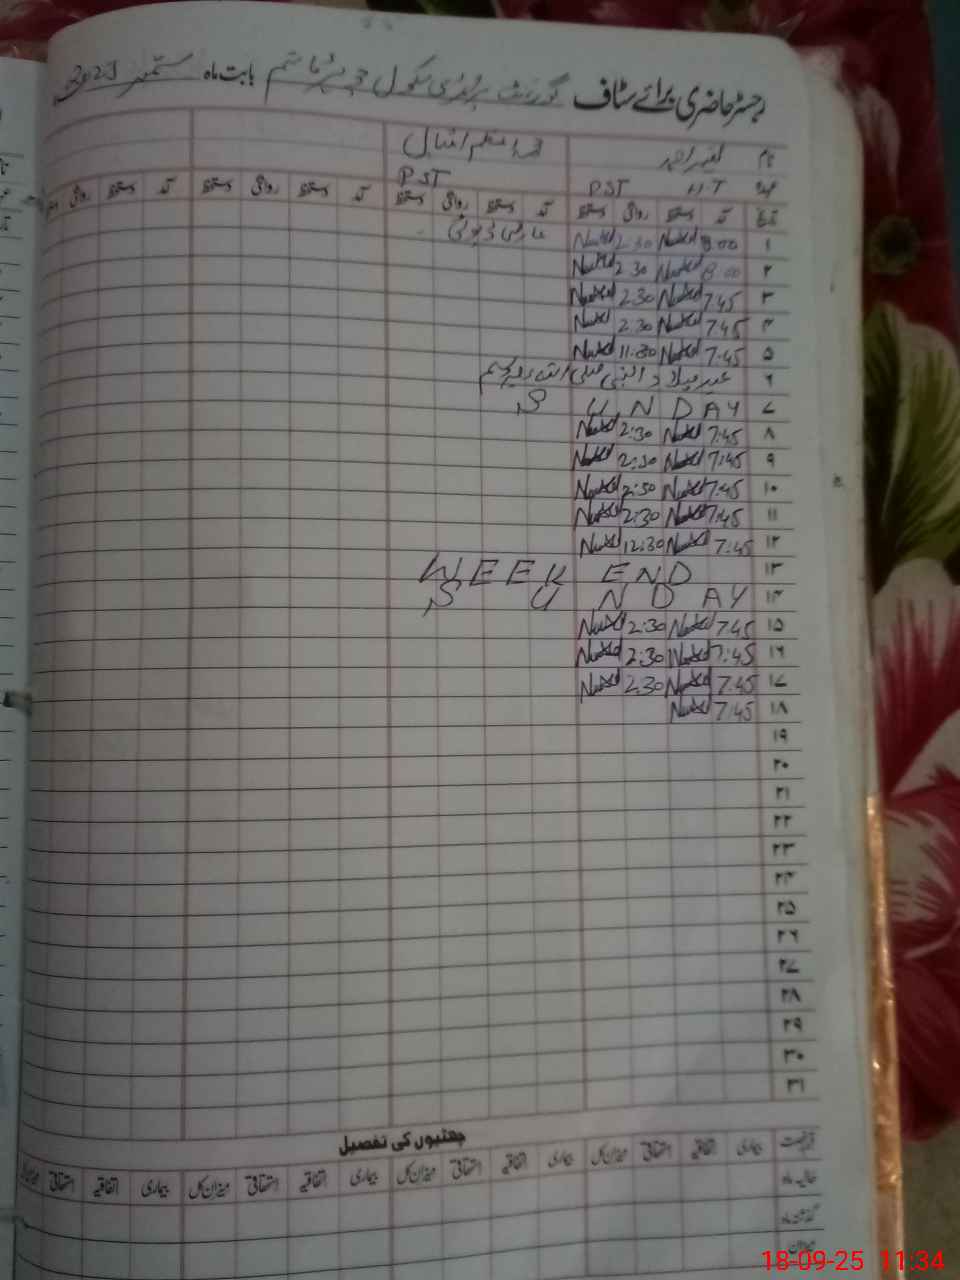 رجسٹر حاضری برائے سٹاف گورنمنٹ پرائمری سکول بابت ماہ ستمبر
نام
عہدہ H.T PST PST
تاریخ آمد دستخط روانگی دستخط آمد دستخط روانگی دستخط آمد دستخط روانگی دستخط آمد دستخط روانگی
۱ 8:00 2:30 عارضی ڈیوٹی
۲ 8:00 2:30
۳ 7:45 2:30
۴ 7:45 2:30
۵ 7:45 11:30
۶ عید میلاد النبی صلی اللہ علیہ وسلم
۷ SUNDAY
۸ 7:45 2:30
۹ 7:45 2:30
۱۰ 7:45 2:30
۱۱ 7:45 2:30
۱۲ 7:45 12:30
۱۳ WEEK END
۱۴ SUNDAY
۱۵ 7:45 2:30
۱۶ 7:45 2:30
۱۷ 7:45 2:30
۱۸ 7:45
۱۹
۲۰
۲۱
۲۲
۲۳
۲۴
۲۵
۲۶
۲۷
۲۸
۲۹
۳۰
۳۱
چھٹیوں کی تفصیل
بیماری اتفاقیہ استحقاقی میزان کل بیماری اتفاقیہ استحقاقی میزان کل بیماری اتفاقیہ استحقاقی میزان کل بیماری اتفاقیہ استحقاقی
حالیہ ماہ
گذشتہ ماہ
میزان
18-09-25 11:34